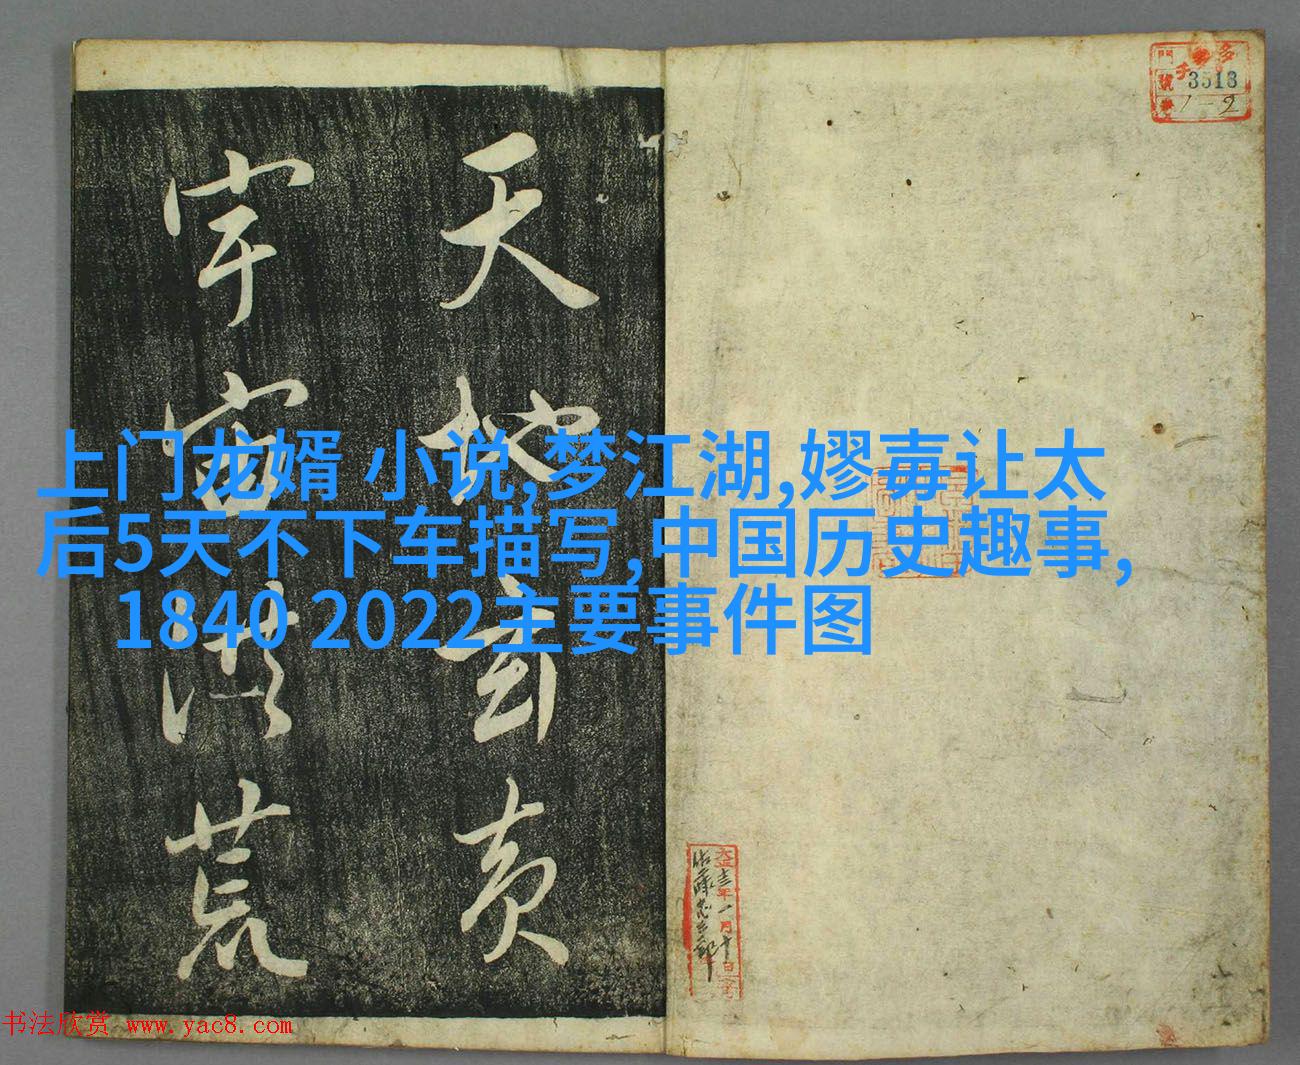 天地玄黄
宇宙洪荒
3513
1-2
上门龙婿 小说,梦江湖,嫪毐让太
后5天不下车描写,中国历史趣事,
1840 2022主要事件图
书法欣赏 www.yac8.com